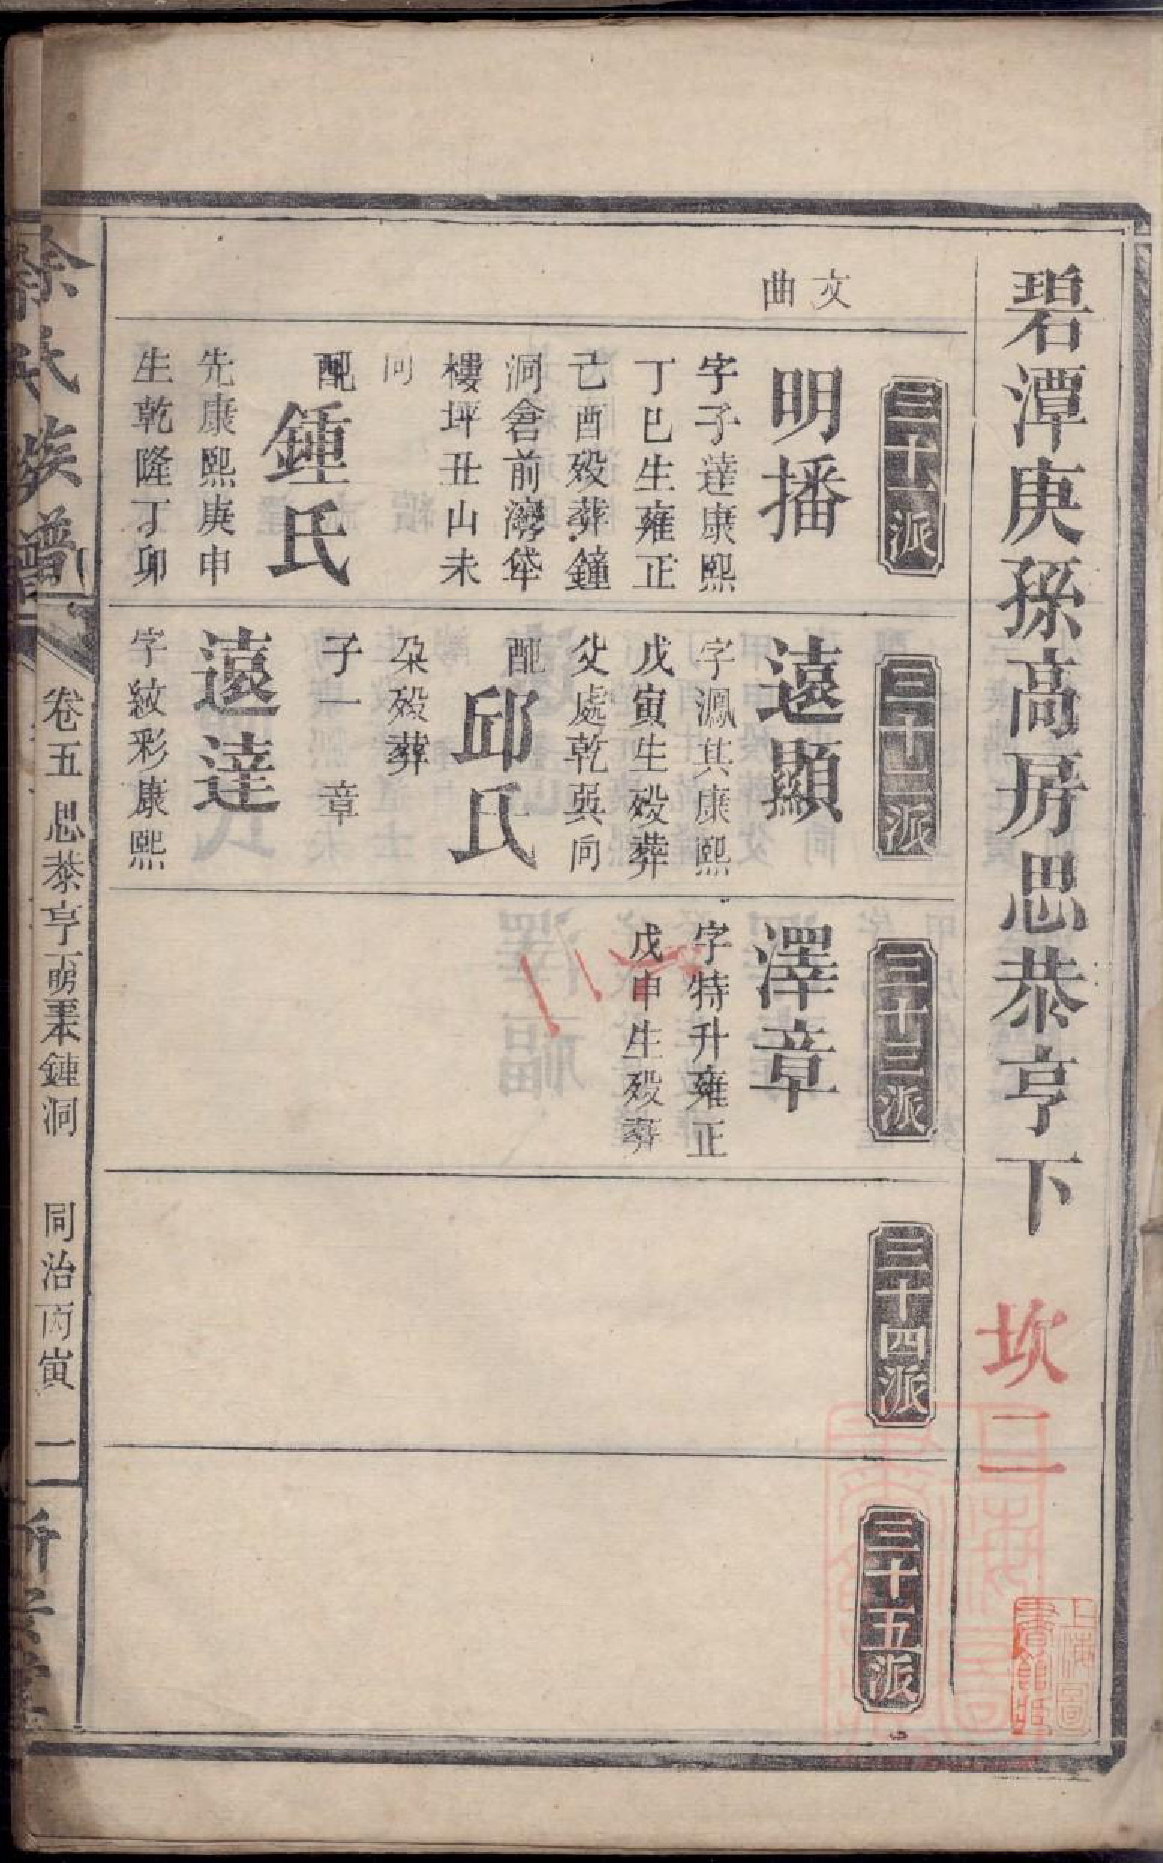 碧潭庚孫高房思恭亨下
坎二
文
曲
三十一派
明播
字子達康熙
丁巳生雍正
己酉殁葬鐘
洞倉前灣垈
樓坪丑山未
向
配
鍾氏
先康熙庚申
生乾隆丁卯
三十二派
遠顯
字鳳其康熙
戊寅生殁葬
父處乾巽向
配
邱氏
朶殁葬
子一 章
遠達
字紋彩康熙
三十三派
澤章
字特升雍正
戊申生殁葬
三十四派
三十五派
上海圖書館
徐氏族譜
卷五
思恭亨
鍾洞
同治丙寅
二